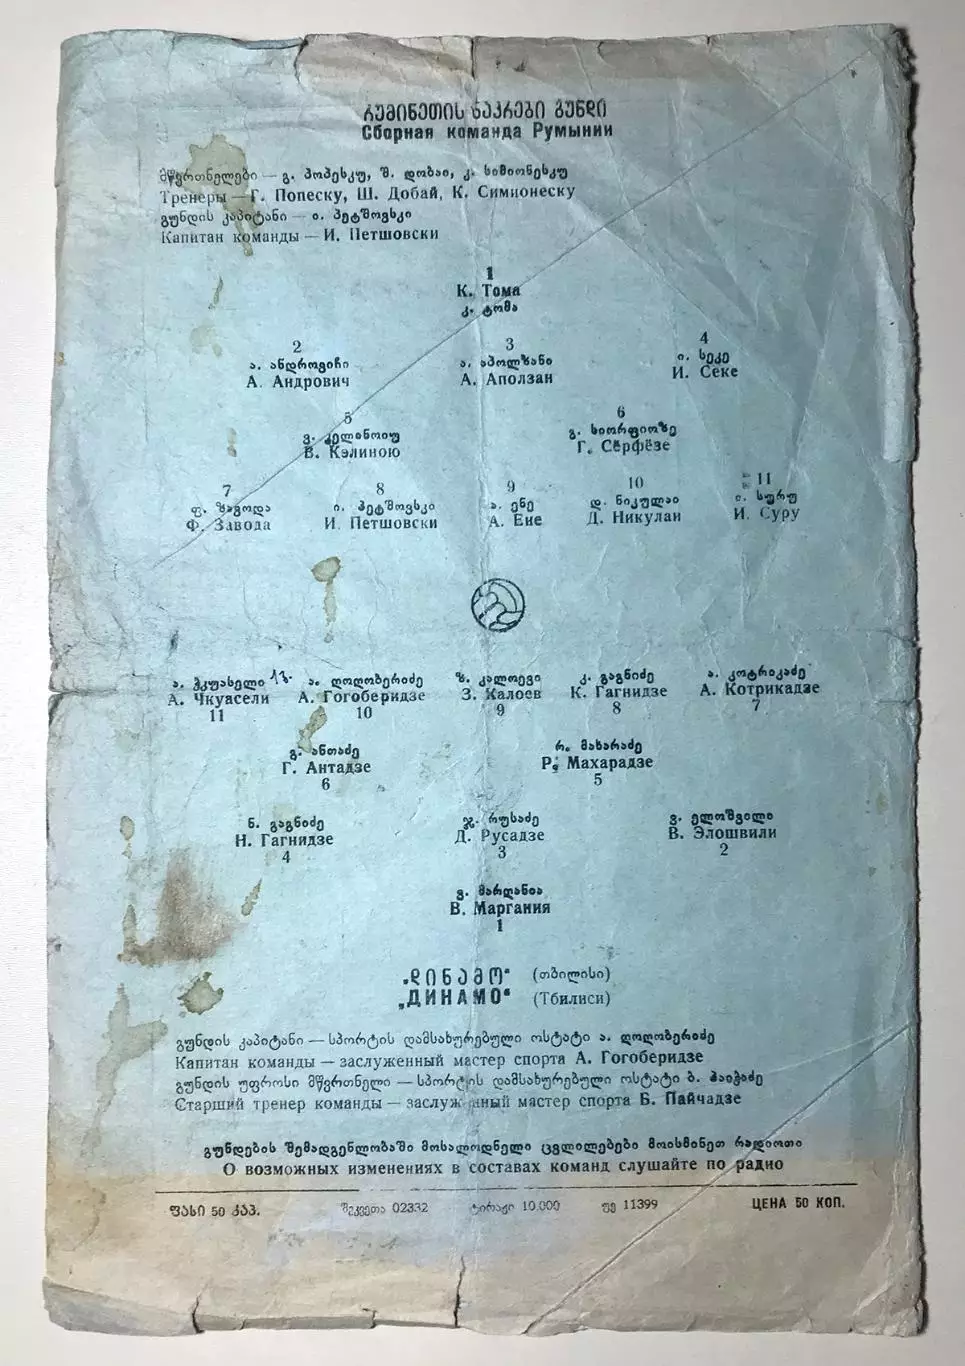 რუმინეთის ნაკრები გუნდი
Сборная команда Румынии
მწვრთნელები — გ. პოპესკუ, შ. დობაი, კ. სიმიონესკუ
Тренеры — Г. Попеску, Ш. Добай, К. Симионеску
გუნდის კაპიტანი — ი. პეტშოვსკი
Капитан команды — И. Петшовски
1
К. Тома
კ. ტომა
2 3 4
ა. ანდროვიჩი ა. აპოლზანი ი. სეკე
А. Андрович А. Аползан И. Секе
5 6
ვ. კელინოიუ გ. სიორფიოზე
В. Кэлиною Г. Сёрфёзе
7 8 9 10 11
ფ. ზავოდა ი. პეტშოვსკი ა. ენე დ. ნიკულაი ი. სურუ
Ф. Завода И. Петшовски А. Ене Д. Никулаи И. Суру
ა. ჭკუასელი ა. ღოღობერიძე ზ. კალოევი კ. გაგნიძე ა. კოტრიკაძე
А. Чкуасели А. Гогоберидзе З. Калоев К. Гагнидзе А. Котрикадзе
11 10 9 8 7
გ. ანთაძე რ. მახარაძე
Г. Антадзе Р. Махарадзе
6 5
ნ. გაგნიძე ჯ. რუსაძე ვ. ელოშვილი
Н. Гагнидзе Д. Русадзе В. Элошвили
4 3 2
ვ. მარღანია
В. Маргания
1
„დინამო“ (თბილისი)
„ДИНАМО“ (Тбилиси)
გუნდის კაპიტანი — სპორტის დამსახურებული ოსტატი ა. ღოღობერიძე
Капитан команды — заслуженный мастер спорта А. Гогоберидзе
გუნდის უფროსი მწვრთნელი — სპორტის დამსახურებული ოსტატი ბ. პაიჭაძე
Старший тренер команды — заслуженный мастер спорта Б. Пайчадзе
გუნდების შემადგენლობაში მოსალოდნელი ცვლილებები მოისმინეთ რადიოთი
О возможных изменениях в составах команд слушайте по радио
ფასი 50 კაპ. შეკვეთა 02332 ტირაჟი 10.000 უე 11399 ЦЕНА 50 КОП.